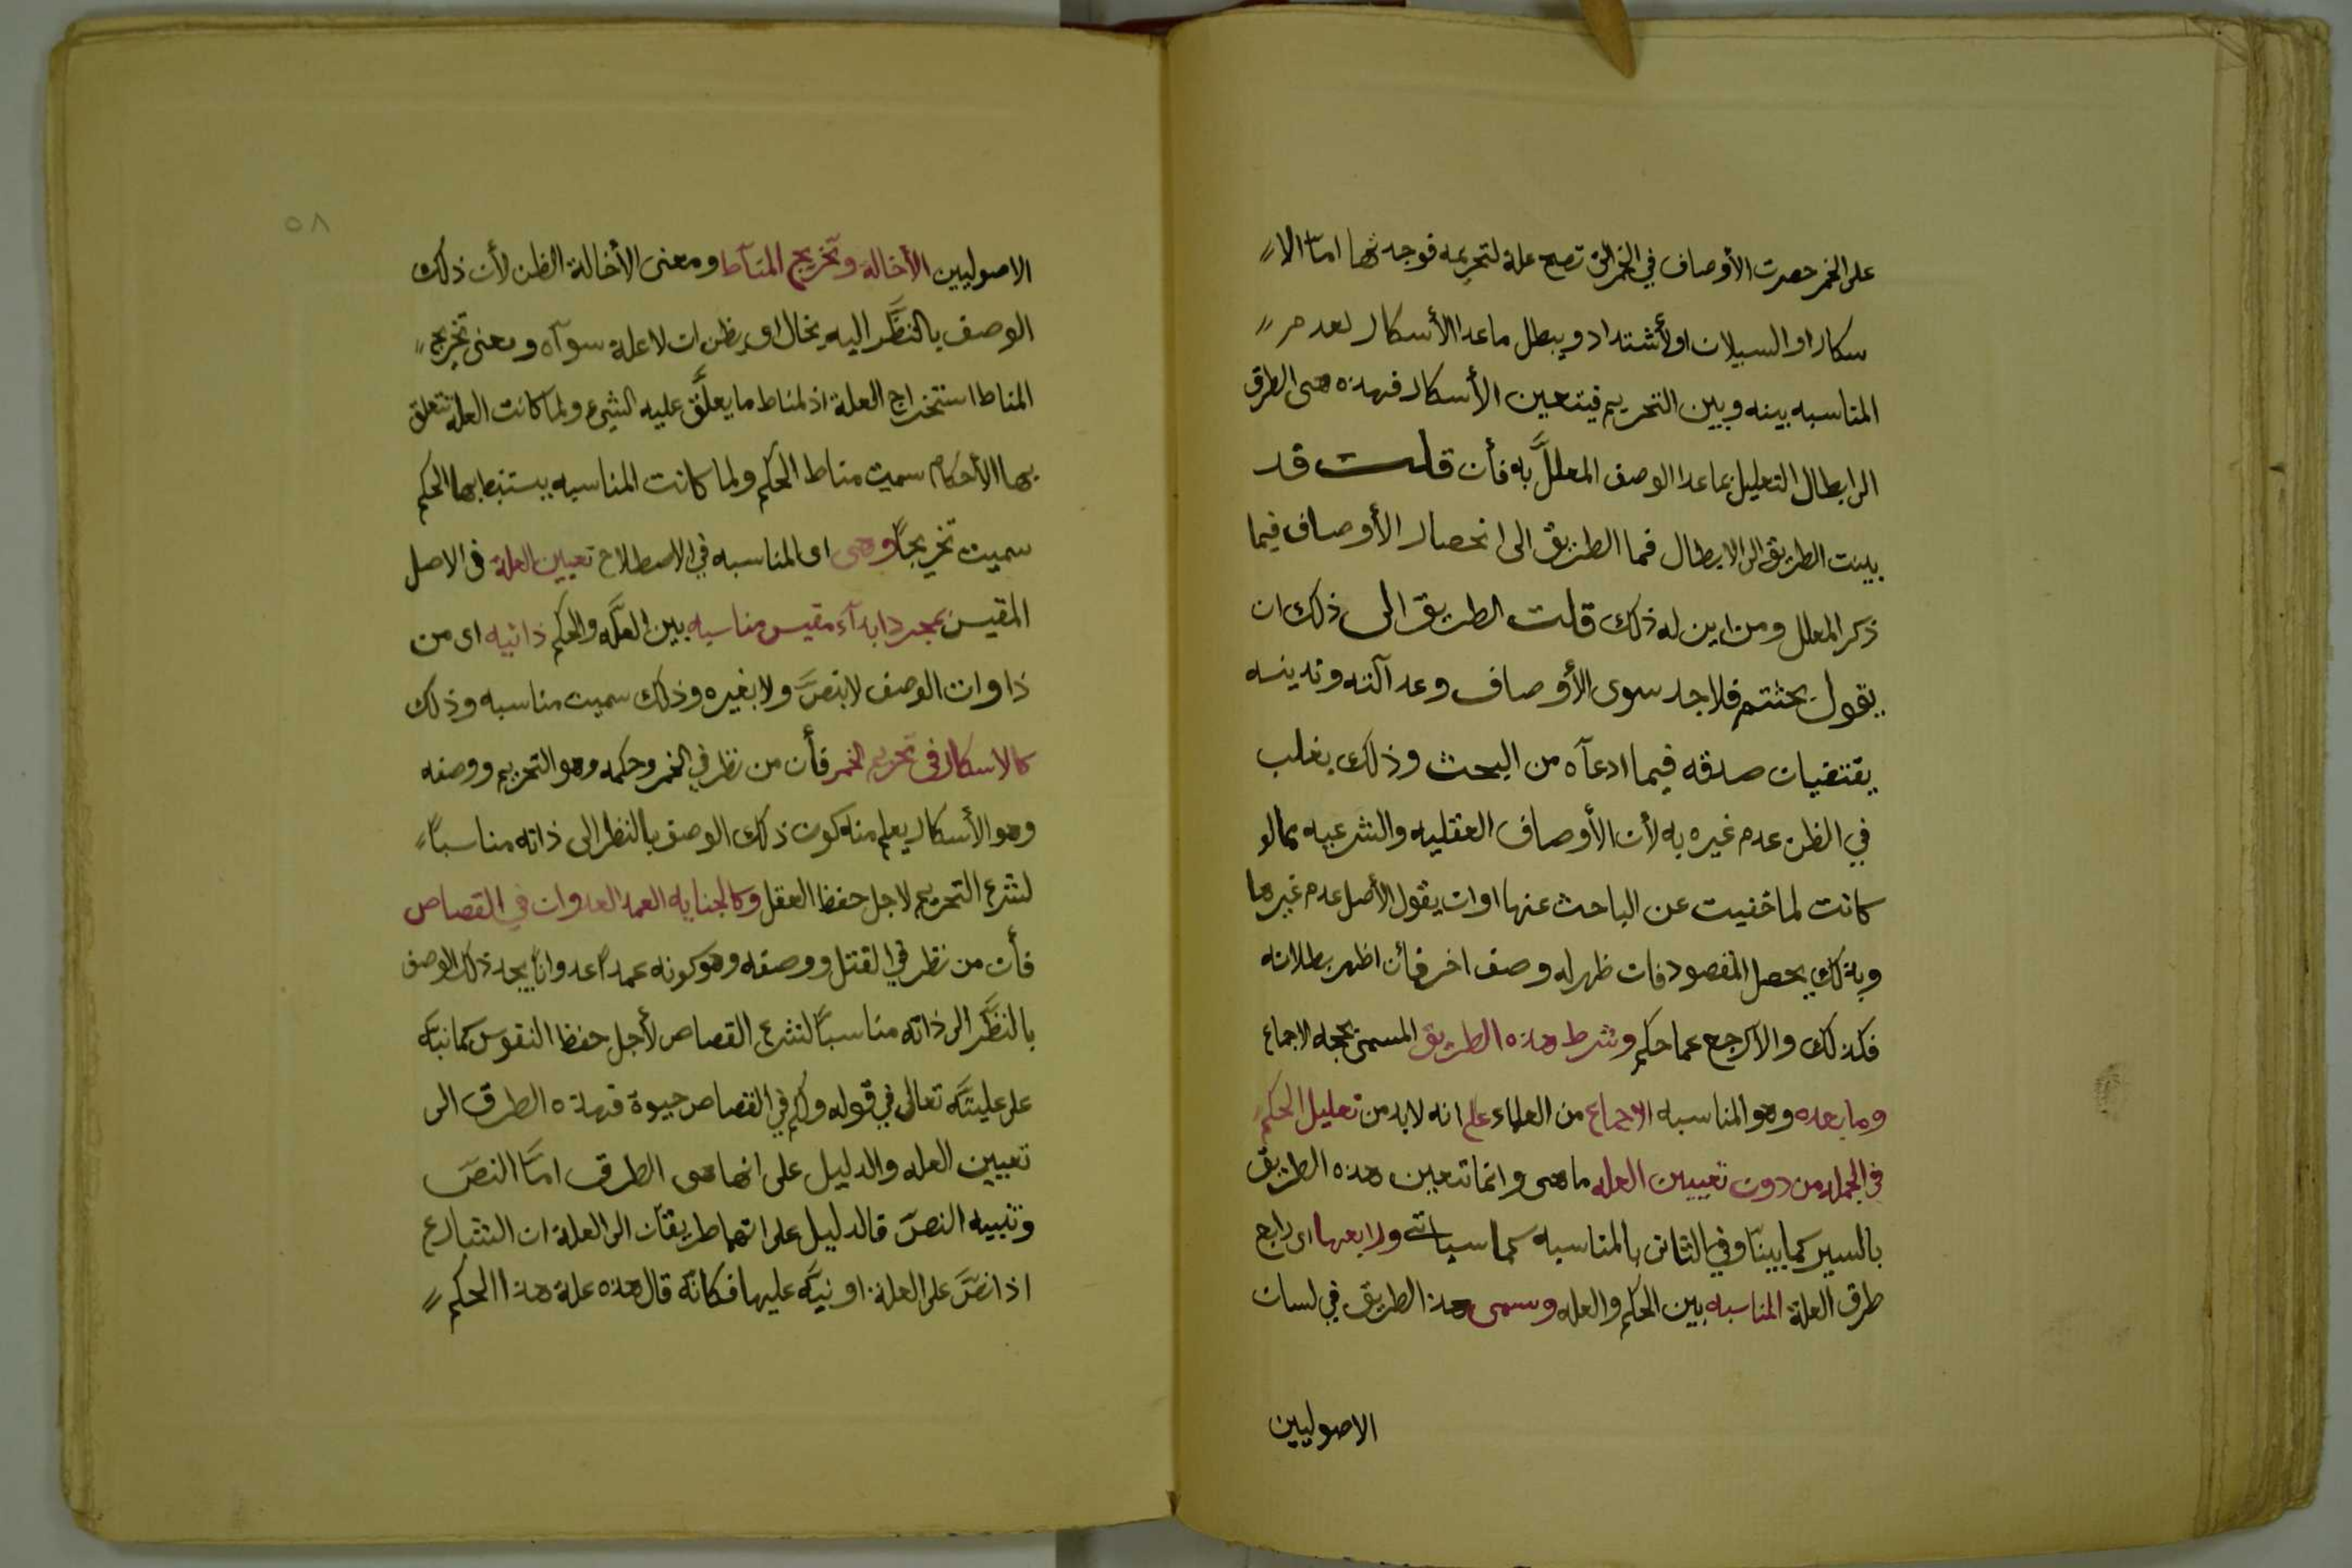 على الخمر حصرت الأوصاف في الخمر التي تصح علة لتحريمه فوجدتها اما الا
سكار او السيلان او لأشتداد ويبطل ما عدا الأسكار لعدم
المناسبه بينه وبين التحريم فيتعين الأسكار فهذه هى الطرق
الى ابطال التعليل بما عدا الوصف المعللّ به فأن قلت قد
بينت الطريق الى الابطال فما الطريق الى انحصار الأوصاف فيما
ذكر المعلل ومن اين له ذلك قلت الطريق الى ذلك ان
يقول بحثتم فلا اجد سوى الأوصاف وعدآلته وتدينه
يقتقيان صدقه فيما ادعآه من البحث وذلك يغلب
في الظن عدم غيره به لأن الأوصاف العقليه والشرعيه مما لو
كانت لما خفيت عن الباحث عنها او ان يقول الأصل عدم غيرها
وبذلك يحصل المقصود فان ظهر له وصف اخر فأن اظهر بطلانه
فكذلك والآ رجع عما حكم وشرط هذه الطريق المسمى بحجه الاجماع
وما بعده وهو المناسبه الاجماع من العلماء على انه لابد من تعليل الحكم
في الجمله من دون تعيين العله ما هى وانما تتعين هذه الطريق
بالسبر كما بينّا وفي الثانى بالمناسبه كما سياتى ورابعها اى رابع
طرق العلة المناسبه بين الحكم والعله وسمى هذا الطريق في لسان
الاصوليين
٥٨
الاصوليين الأخالة وتخريج المنآط ومعنى الأخالة الظن لأن ذلك
الوصف بالنظَّر اليه يخال اى يظن ان لا علة سوآه ومعنى تخريج
المناط استخراج العلة اذ لمناط ما يعلَّق عليه الشيئ ولما كانت العلة تتعلق
بها الأحكام سميت مناط الحكم ولما كانت المناسبه يستنبط بها الحكم
سميت تخريجاً وهى اى المناسبه في الاصطلاح تعيين العلة فى الاصل
المقيس بمجرد ابدآء مقيس مناسبه بين العلَّه والحكم ذاتيه اى من
ذاوات الوصف لا بنصَّ ولا بغيره وذلك سميت مناسبه وذلك
كالاسكار فى تحريم الخمر فأن من نظر في الخمر وحكمه وهو التحريم ووصفه
وهو الأسكار يعلم منه كون ذلك الوصف بالنظر الى ذاته مناسباً
لشرع التحريم لاجل حفظ العقل وكالجنايه العمد العدوان في القصاص
فأن من نظر في القتل ووصفه وهو كونه عمداً عدواناً يجد ذلك الوصف
بالنظَّر الى ذاته مناسباً لشرع القصاص لأجل حفظ النفوس كما نبَّه
على عليتَّه تعالى في قوله ولكم في القصاص حيوة فهذه الطرق الى
تعيين العله والدليل على انها هى الطرق امّا النصّ
وتنبيه النصّ فالدليل على انهما طريقان الى العلة ان الشارع
اذا نصَّ على العلة او نبَّه عليها فكانَّه قال هذه علة هذا الحكم